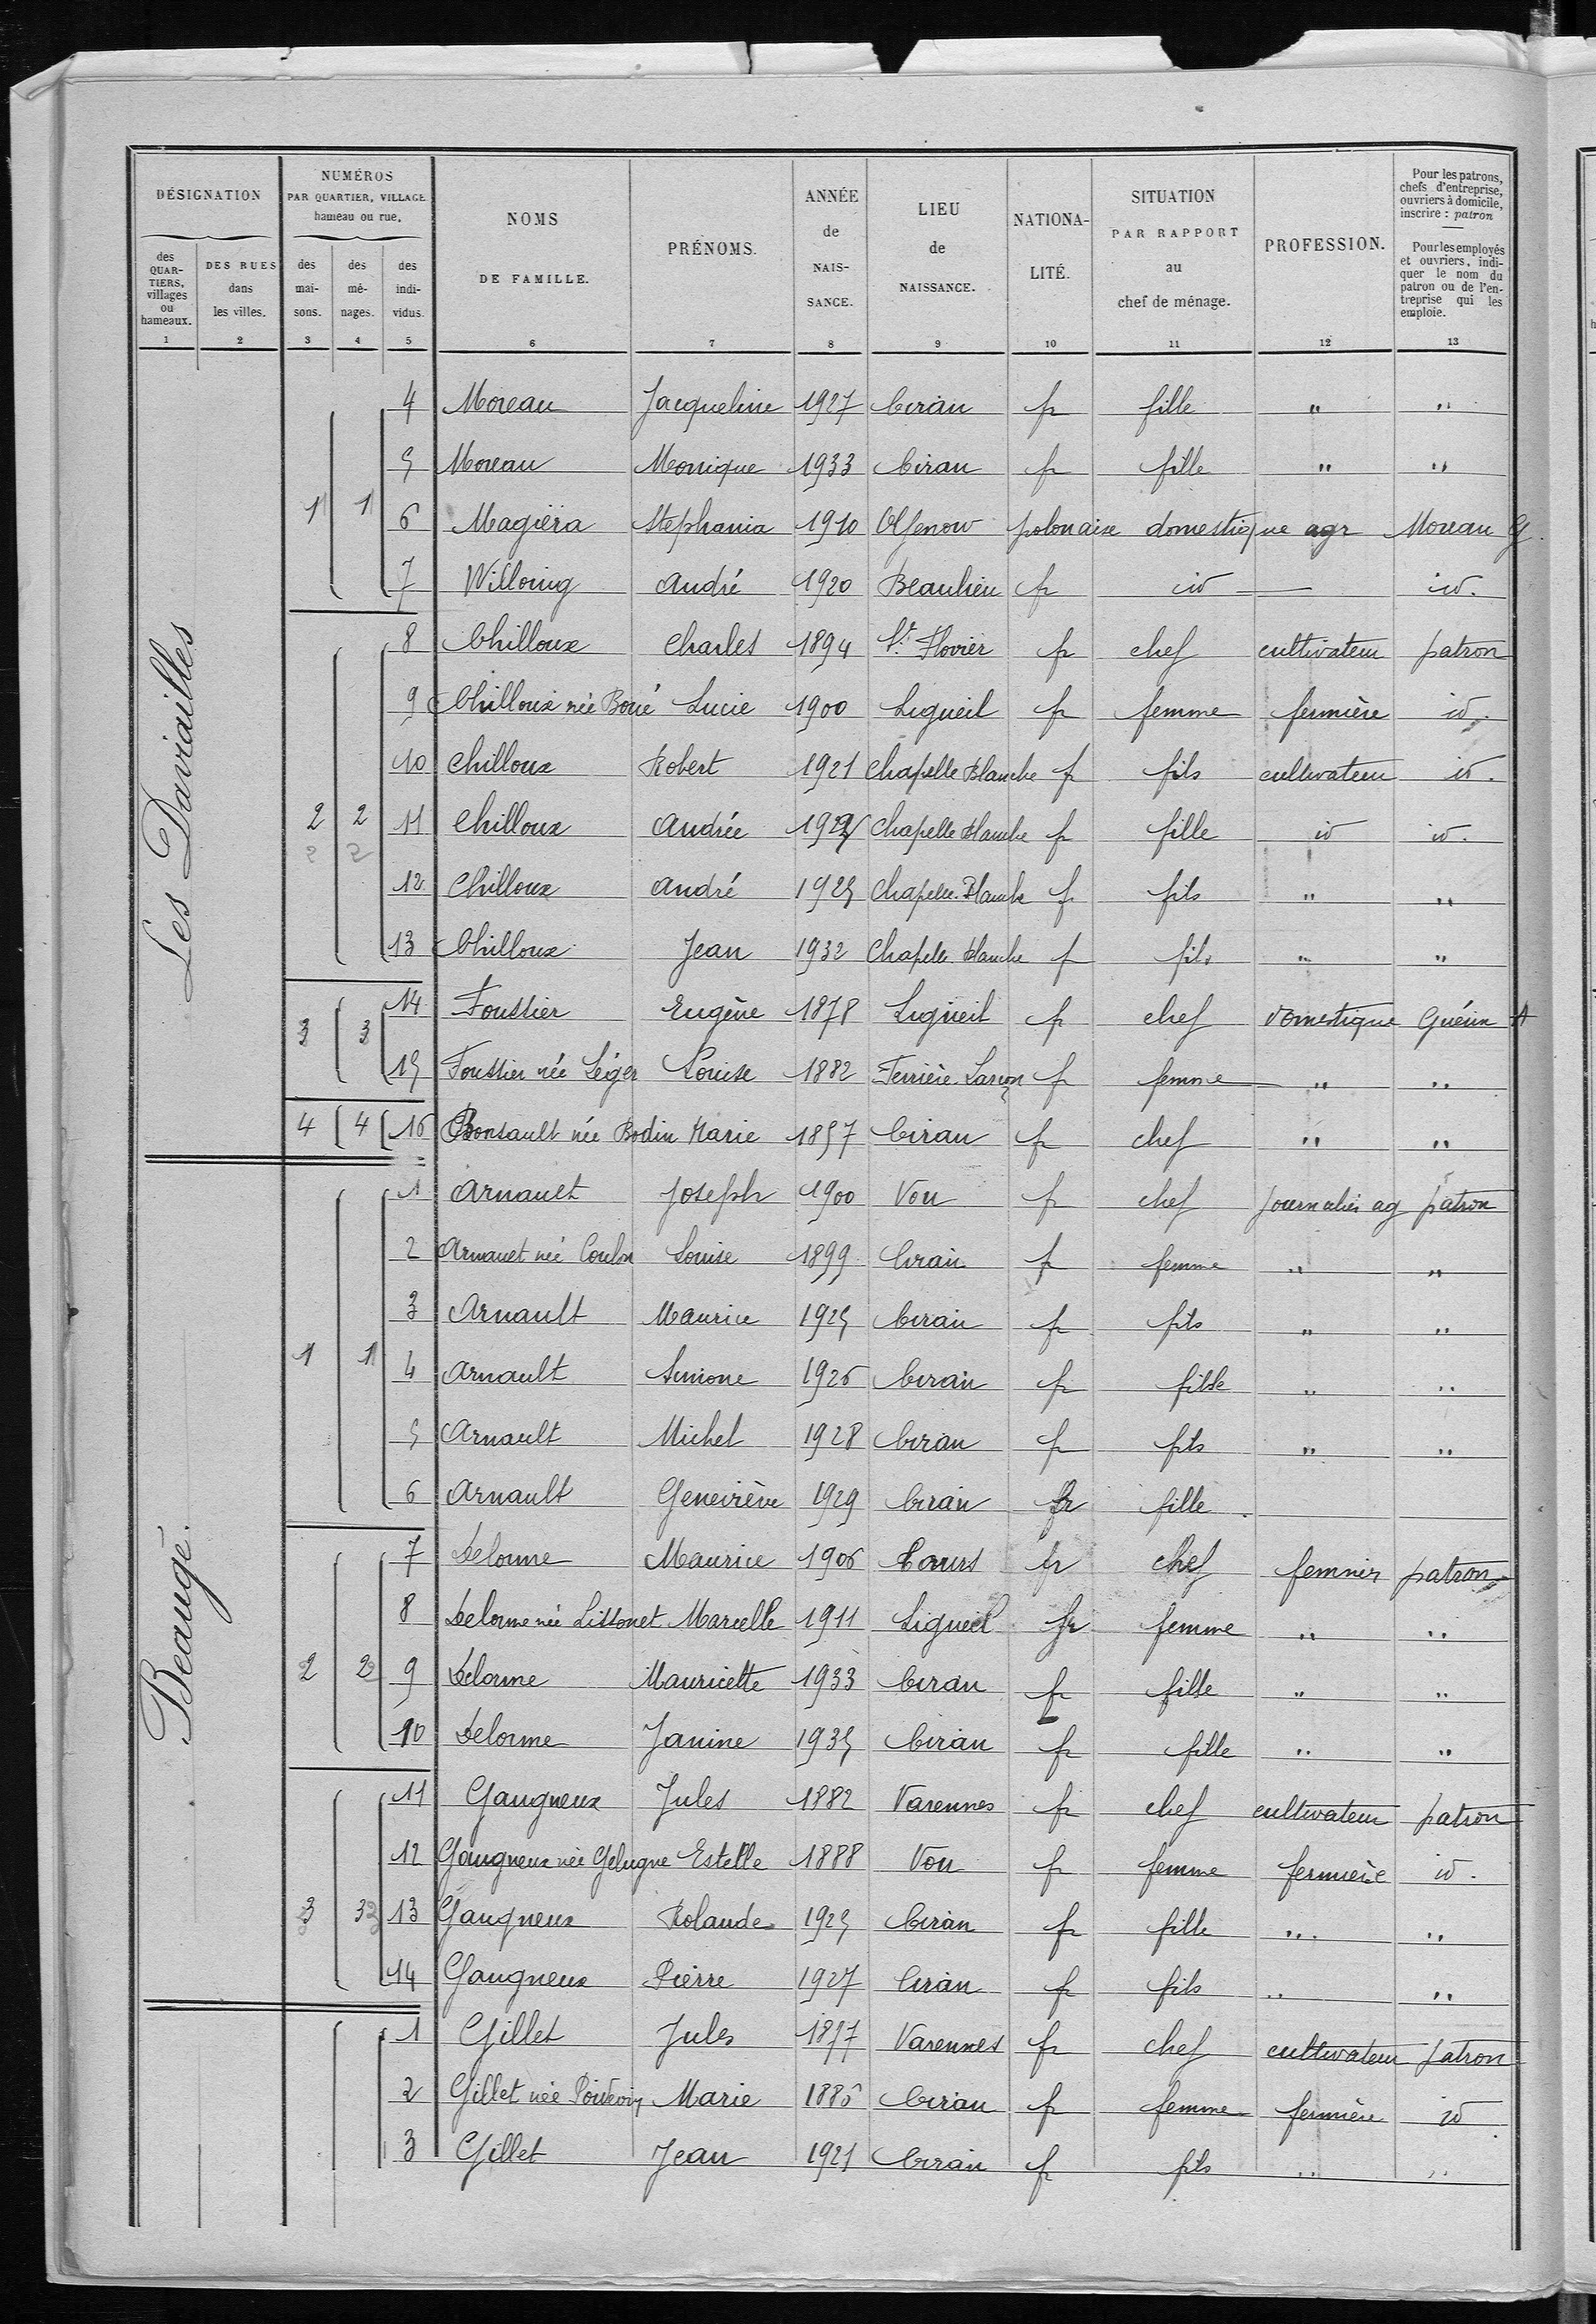 DÉSIGNATION
NUMÉROS
PAR QUARTIER, VILLAGE
hameau ou rue.
des QUARTIERS, villages ou hameaux.
DES RUES dans les villes.
des maisons.
des ménages.
des individus.
NOMS DE FAMILLE.
PRÉNOMS.
ANNÉE de NAISSANCE.
LIEU de NAISSANCE.
NATIONALITÉ.
SITUATION PAR RAPPORT au chef de ménage.
PROFESSION.
Pour les patrons, chefs d'entreprise, ouvriers à domicile, inscrire : patron
Pour les employés et ouvriers, indiquer le nom du patron ou de l'entreprise qui les emploie.
1 2 3 4 5 6 7 8 9 10 11 12 13
Les Davrailles
4 Moreau Jacqueline 1927 Ciran fr fille " "
5 Moreau Monique 1933 Ciran fr fille " "
1 1 6 Magiëra Stephania 1910 polonaise domestique agr Moreau G.
7 André 1920 Beaulieu fr id — id.
8 Chilloux Charles 1894 St Flovier fr chef cultivateur patron
9 Chilloux née Boué Lucie 1900 Ligueil fr femme fermière id.
10 Chilloux Robert 1921 Chapelle Blanche f fils cultivateur id.
2 2 11 Chilloux Andrée Chapelle Blanche f fille id id.
12 Chilloux André 1925 Chapelle Blanche f fils " "
13 Chilloux Jean 1932 Chapelle Blanche f fils " "
14 Foussier Eugène 1878 Ligueil fr chef domestique Guérin A
3 3 15 Foussier née Léger Louise 1882 Ferrière Larçon f femme " "
4 4 16 née Bodin Marie 1857 Ciran fr chef " "
Beaugé.
1 Arnault Joseph 1900 Vou fr chef journalier ag patron
2 Arnault née Coulon Louise 1899 Ciran f femme " "
3 Arnault Maurice 1925 Ciran fr fils " "
1 1 4 Arnault Simone 1926 Ciran fr fille " "
5 Arnault Michel 1928 Ciran fr fils " "
6 Arnault Geneviève 1929 Ciran fr fille
7 Delorme Maurice 1906 Tours fr chef fermier patron
8 Delorme née Lissonet Marcelle 1911 Ligueil fr femme " "
2 2 9 Delorme Mauricette 1933 Ciran fr fille " "
10 Delorme Janine 1935 Ciran fr fille " "
11 Gaugneux Jules 1882 Varennes fr chef cultivateur patron
12 Gaugneux née Gelugne Estelle 1888 Vou fr femme fermière id.
3 3 13 Gaugneux Rolande 1925 Ciran fr fille " "
14 Gaugneux Pierre 1927 Ciran fr fils " "
1 Gillet Jules 1877 Varennes fr chef cultivateur patron
2 Gillet née Poitevin Marie 1886 Ciran fr femme fermière id
3 Gillet Jean 1921 Ciran fr fils " "